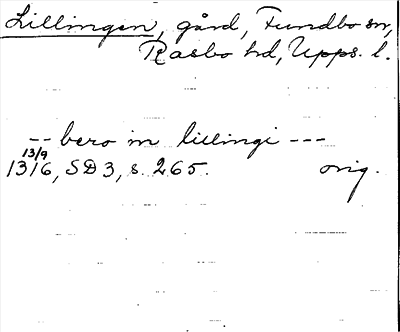 Lillingen, gård, Funbo sn,
Rasbo hd, Upps. l.
-- bero in lillingi ---
13/9
1316, SD 3, s. 265. orig.